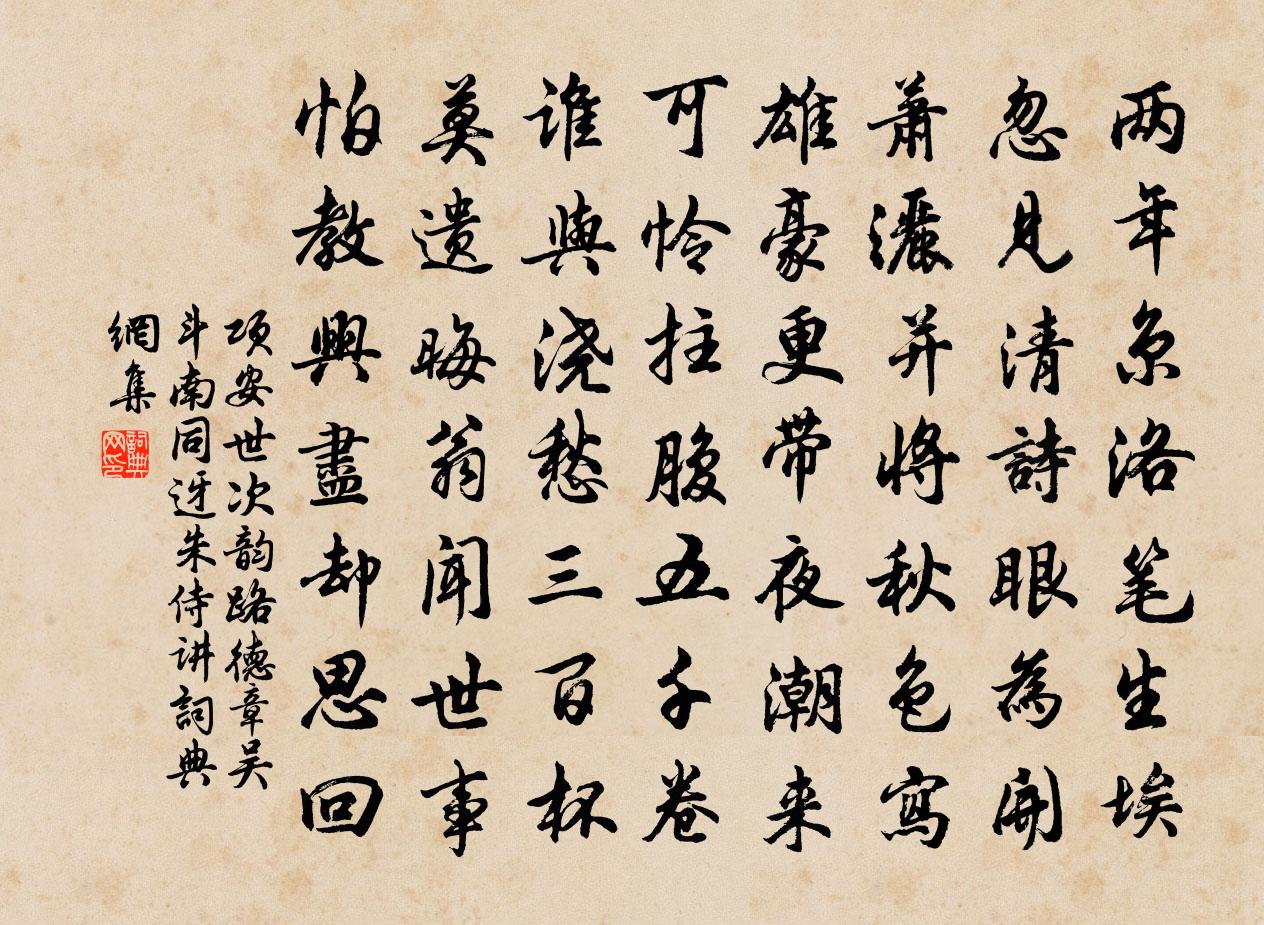 两年京洛笔生埃
忽见清詩眼為開
萧灑并将秋色寫
雄豪更带夜潮来
可怜拄腹五千卷
谁與浇愁三百杯
莫遗晦翁闻世事
怕教興盡却思回
项安世次韵路德章吴
斗南同迓朱侍讲詞典
網集
詞典
网印